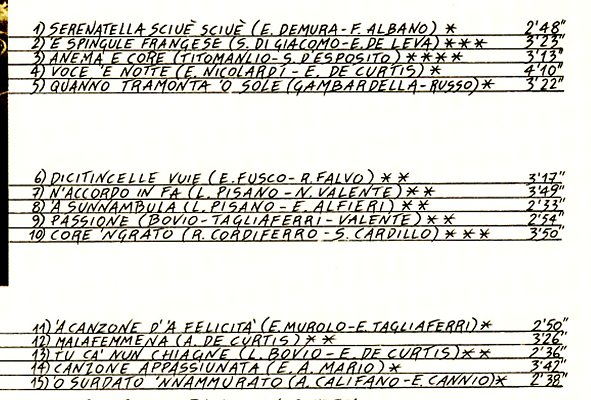 1) SERENATELLA SCIUÈ SCIUÈ (E. DEMURA - F. ALBANO) * 2'48"
2) 'E SPINGULE FRANGESE (S. DI GIACOMO - E. DE LEVA) * * * 3'23"
3) ANEMA E CORE (TITOMANLIO - S. D'ESPOSITO) * * * * 3'13"
4) VOCE 'E NOTTE (E. NICOLARDI - E. DE CURTIS) * 4'10"
5) QUANNO TRAMONTA 'O SOLE (GAMBARDELLA - RUSSO) * 3'22"
6) DICITINCELLE VUIE (E. FUSCO - R. FALVO) * * 3'17"
7) N'ACCORDO IN FA (L. PISANO - N. VALENTE) * * 3'49"
8) 'A SUNNAMBULA (L. PISANO - E. ALFIERI) * * 2'33"
9) PASSIONE (BOVIO - TAGLIAFERRI - VALENTE) * * 2'54"
10) CORE 'NGRATO (R. CORDIFERRO - S. CARDILLO) * * * 3'50"
11) 'A CANZONE D'A FELICITÀ (E. MUROLO - E. TAGLIAFERRI) * 2'50"
12) MALAFEMMENA (A. DE CURTIS) * * 3'26"
13) TU CA' NUN CHIAGNE (L. BOVIO - E. DE CURTIS) * * 2'36"
14) CANZONE APPASSIUNATA (E. A. MARIO) * 3'42"
15) 'O SURDATO 'NNAMMURATO (A. CALIFANO - E. CANNIO) * 2'38"